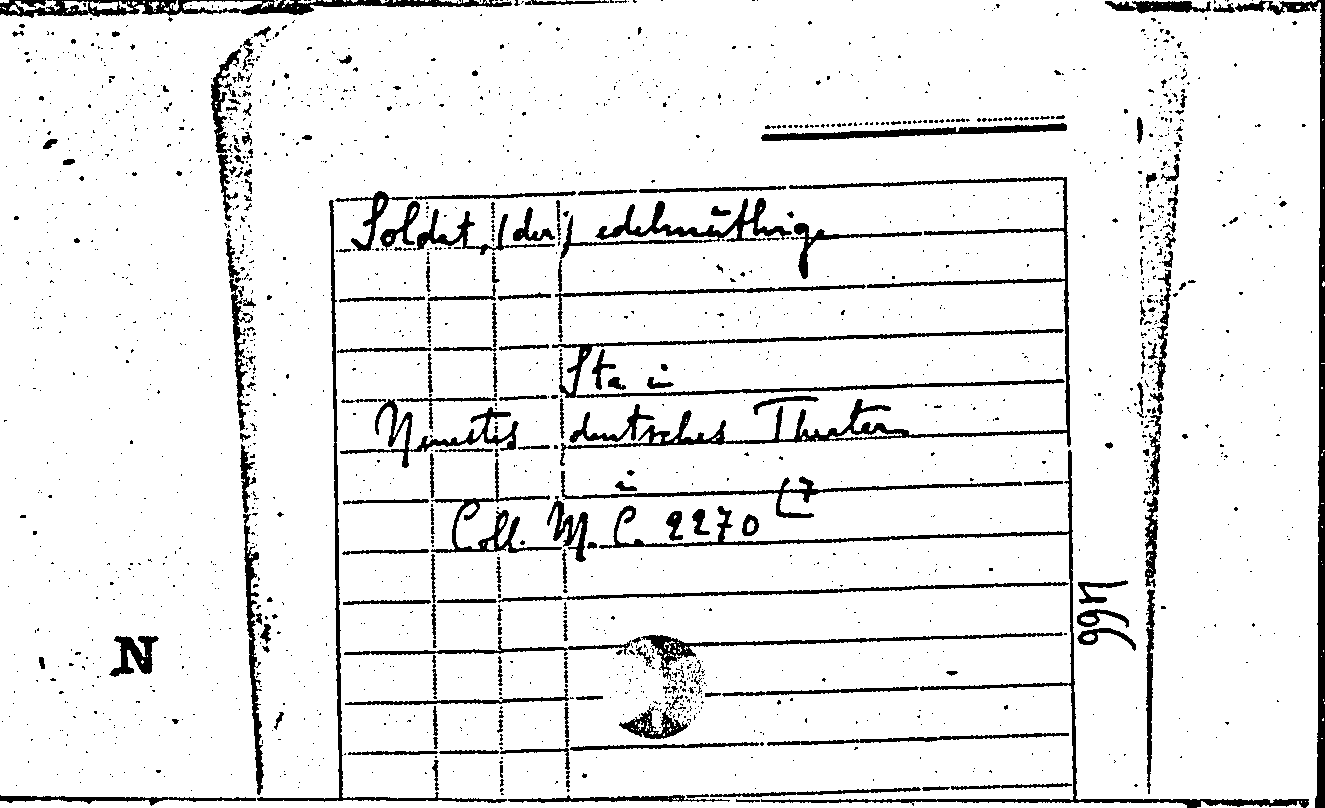 Soldat, (der) edelmüthige
Sta in
Neuestes deutsches Theater
in
Coll. M. C. 2270 (7
N